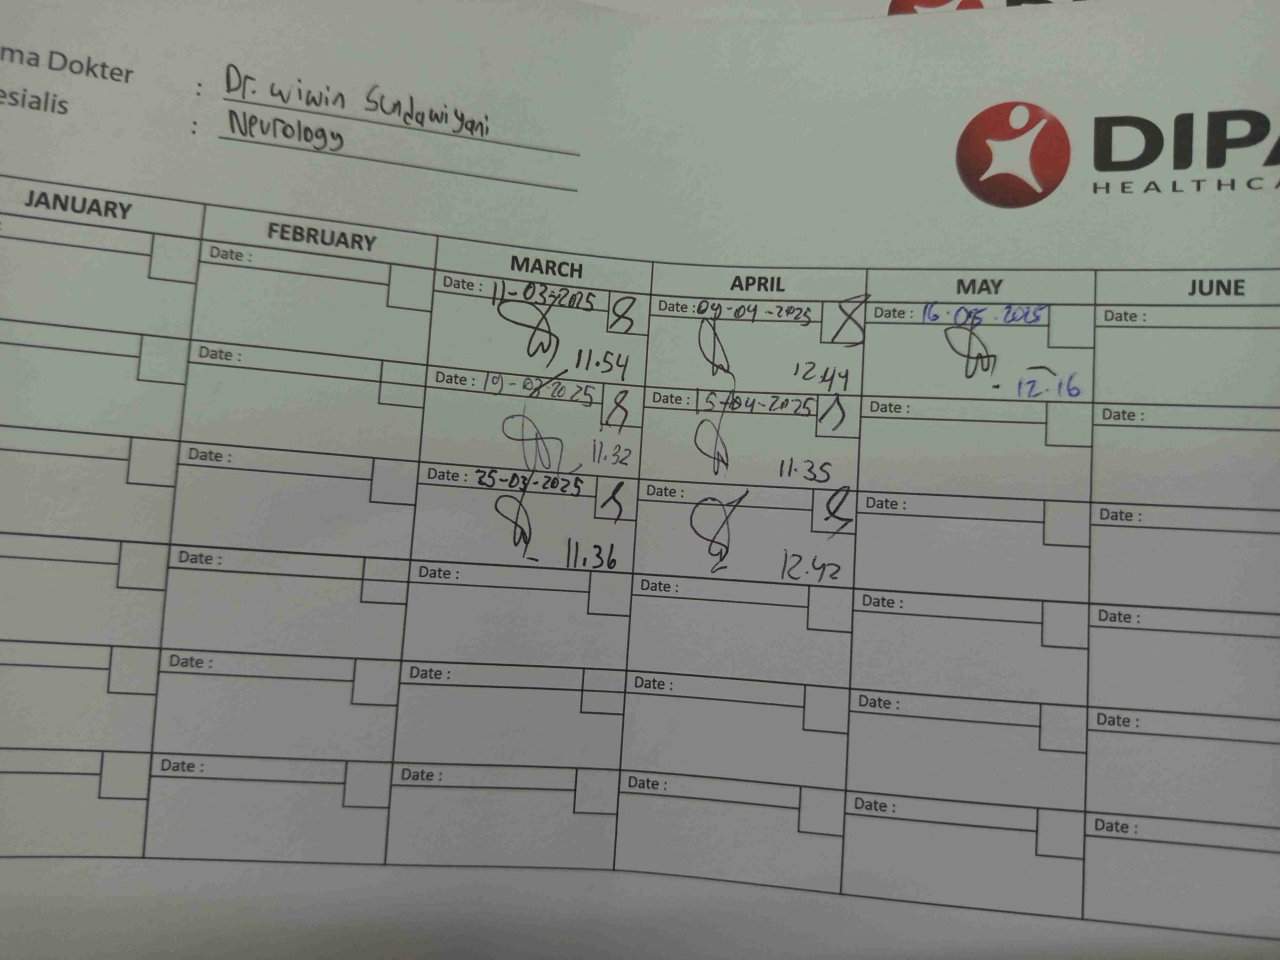 ma Dokter : Dr. Wiwin Sundawiyani
esialis : Neurology
DIPA
HEALTHCA
JANUARY FEBRUARY MARCH APRIL MAY JUNE
: Date : Date : 11-03-2025 Date : 09-04-2025 Date : 16-05-2025 Date :
11.54 12.44 12.16
Date : Date : 19-03-2025 Date : 15-04-2025 Date : Date :
11.32 11.35
Date : Date : 25-03-2025 Date : Date : Date :
11.36 12.42
Date : Date : Date : Date : Date :
Date : Date : Date : Date : Date :
Date : Date : Date : Date : Date :